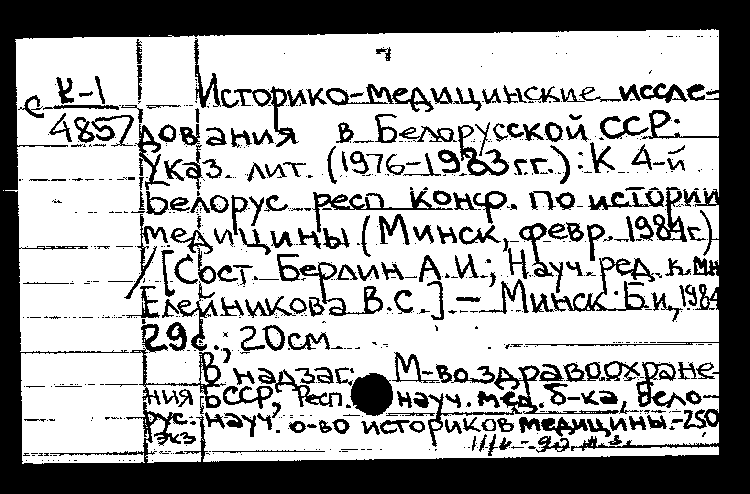 К-1
С 4857
Историко-медицинские иссле-
дования в Белорусской ССР:
Указ. лит. (1976-1983 гг.): К 4-й
Белорус респ конф. по истории
медицины (Минск, февр. 1984г)
/ [Сост. Берлин А.И.; Науч. ред. к.мн
Елейникова В.С.]. – Минск: Б.и, 1984
29с.; 20см
В надзаг: М-во здравоохране-
ния БССР, Респ. науч. мед. б-ка, бело-
рус. науч. о-во историков медицины.-250
экз